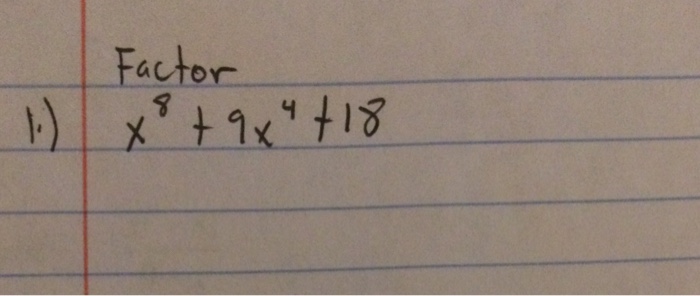 Factor
1.) x⁸ + 9x⁴ + 18